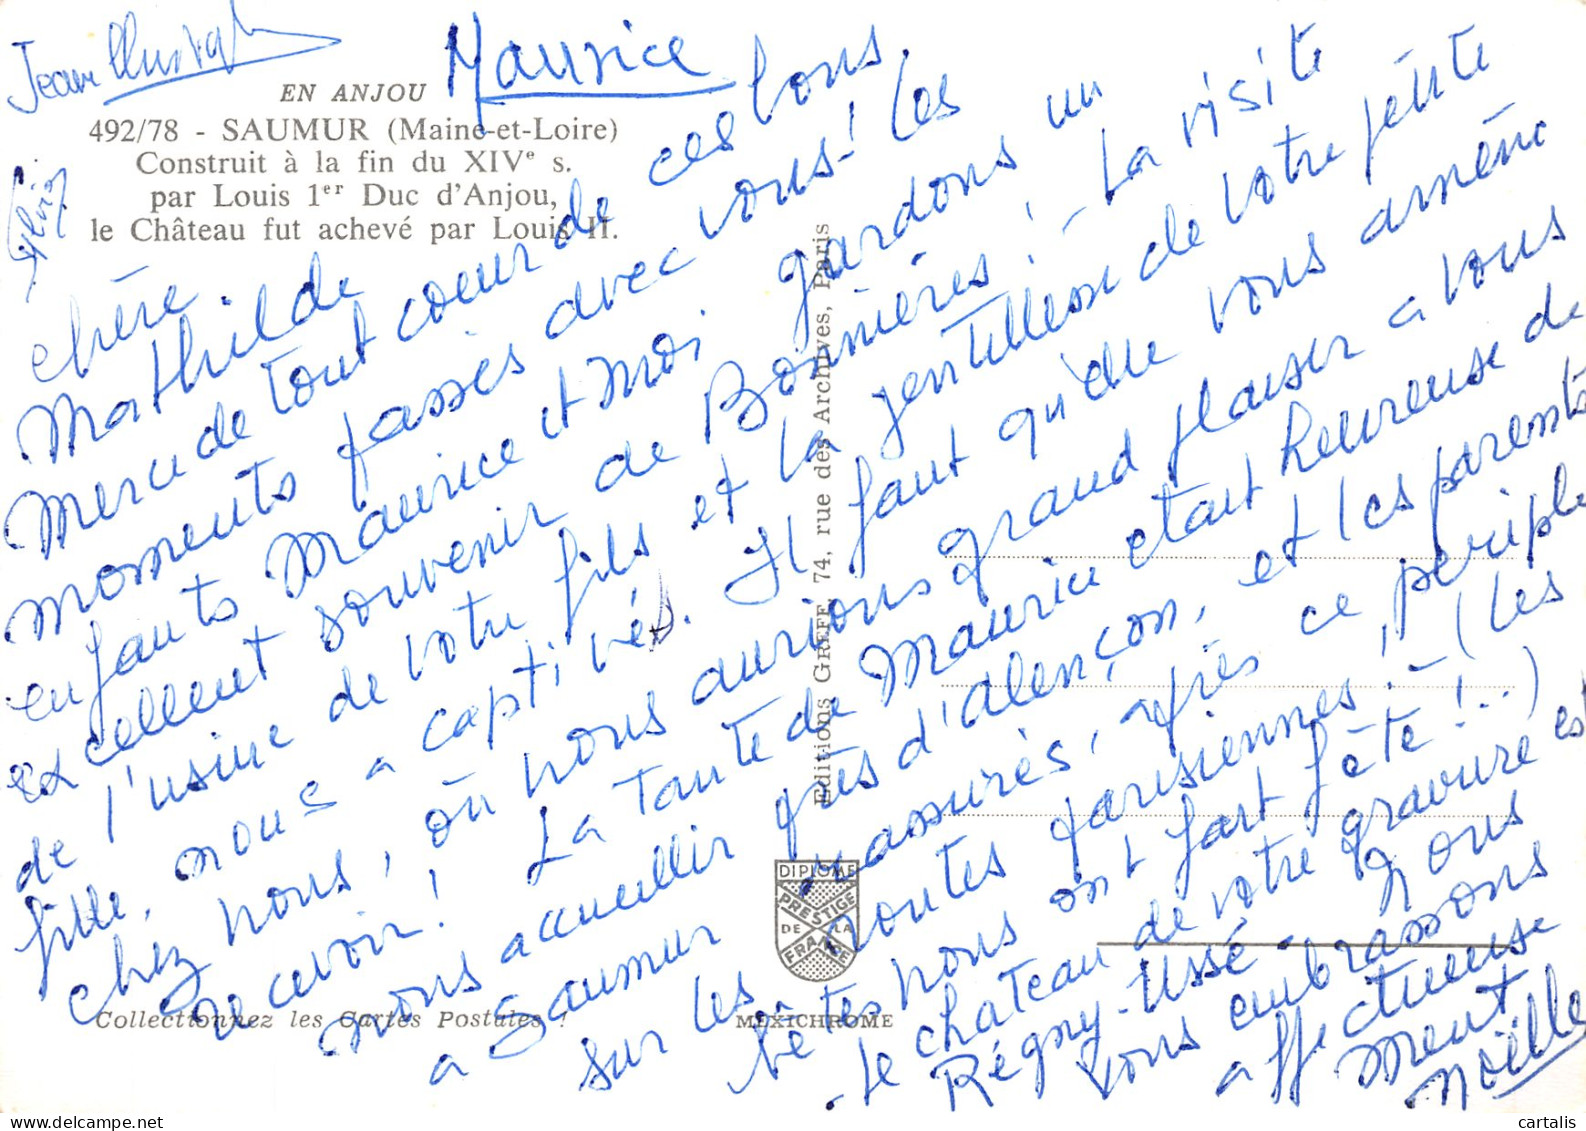 Jean
Maurice
EN ANJOU
492/78 - SAUMUR (Maine-et-Loire)
Construit à la fin du XIVe s.
par Louis 1er Duc d'Anjou,
le Château fut achevé par Louis II.
Sylvie
chère
Mathilde
Merci de tout coeur de ces bons
moments passés avec vous! Les
enfants Maurice et moi gardons un
excellent souvenir de Bonnières! - La visite
de l'usine de votre fils et la gentillesse de votre petite
fille, nous a captivés. Il faut qu'elle vous amène
chez nous, où nous aurions grand plaisir a vous
recevoir! La Tante de Maurice était heureuse de
nous accueillir près d'Alençon, et les parents
a Saumur rassurés, après ce périple
sur les routes parisiennes! - (Les
bêtes nous ont fait fête!..)
- le chateau de votre gravure est
Régny-Ussé - Nous
vous embrassons
affectueuse
ment
Noëlle
Editions GREFF 74, rue des Archives, Paris
DIPLOME
PRESTIGE
DE LA
FRANCE
Collectionnez les Cartes Postales !
MEXICHROME
cartalis